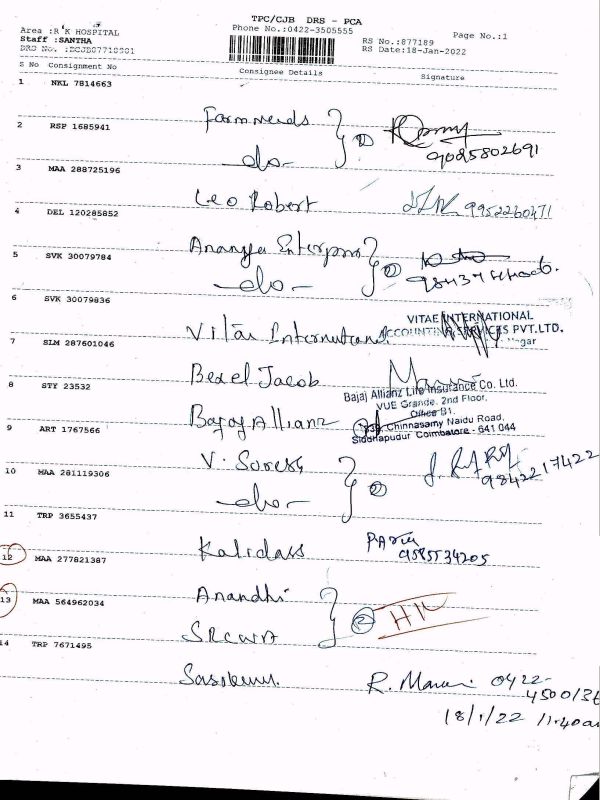 TPC/CJB DRS - PCA
Area :R K HOSPITAL Phone No.:0422-3505555 Page No.:1
Staff :SANTHA RS No.:877189
RS Date:18-Jan-2022
S No Consignment No Consignee Details Signature
1 NKL 7814663
2 RSP 1685941
-do- 9025802691
3 MAA 288725196
Leo Robert 9952260471
4 DEL 120285852
5 SVK 30079784
-do-
6 SVK 30079836
VITAE INTERNATIONAL
ACCOUNTING SERVICES PVT.LTD.
7 SLM 287601046
Jacob
8 STY 23532
Bajaj Allianz Life Insurance Co. Ltd.
VUE Grande, 2nd Floor,
Bajaj Allianz Office B1,
Chinnasamy Naidu Road,
Siddhapudur Coimbatore - 641 044
9 ART 1767566
V. Suresh
9842217422
10 MAA 281119306
-do-
11 TRP 3655437
Kalidass
9585534205
12 MAA 277821387
Anandhi
13 MAA 564962034
14 TRP 7671495
0422-
18/1/22 11.40am